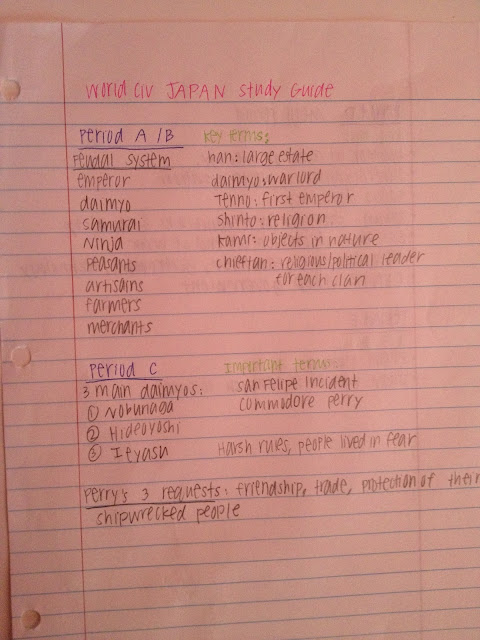 World Civ JAPAN Study Guide
Period A/B
Feudal system
emperor
daimyo
samurai
Ninja
Peasants
artisans
farmers
merchants
Key terms:
han: large estate
daimyo: warlord
Tenno: first emperor
Shinto: religion
Kami: objects in nature
chieftan: religious/political leader
for each clan
Period C
3 main daimyos:
① Nobunaga
② Hideoyoshi
③ Ieyasu
Important terms:
San Felipe Incident
Commodore Perry
Harsh rules, people lived in fear
Perry's 3 requests: friendship, trade, protection of their
shipwrecked people